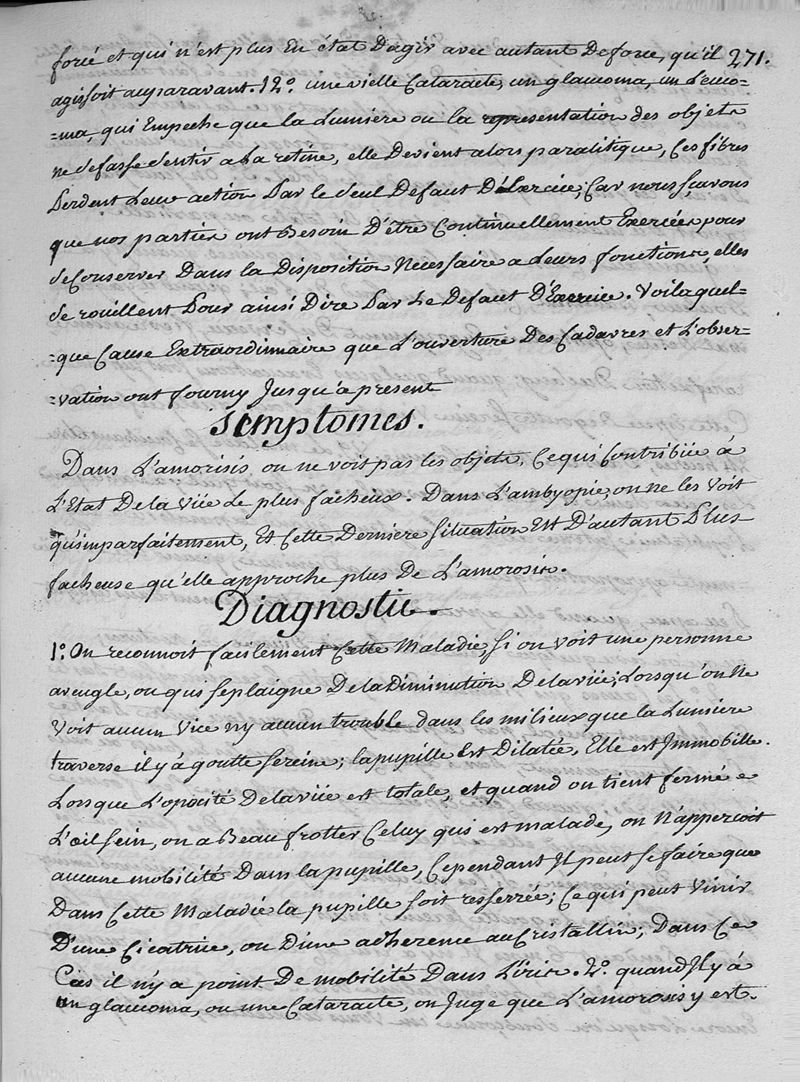 forcé et qui n'est plus En état D'agir avec autant De force, qu'il 271.
agissoit auparavant. 12.° une vielle Cataracte, un glaucoma, un Leuco-
-ma, qui Empeche que la Lumière ou la representation des objets
ne se fasse Sentir a La retine, elle Devient alors paralitique, Ces fibres
Perdent Leur action Par le Seul Defaut D'Exercice; Car nous sçavons
que nos parties ont Besoin D'être Continuellement Exercées pour
se Conserver Dans la Disposition Necessaire a Leurs fonctions, elles
se rouillent Pour ainsi Dire Par Le Defaut D'Exercice. Voila quel-
-que Cause Extraordinnaire que L'ouverture Des Cadavres et L'obser-
-vation ont fourny Jusqu'a present
Simptomes.
Dans L'amorisis, on ne voit pas les objets, Ce qui Contribüe á
L'Etat De la Vüe Le plus facheux. Dans L'ambyopie, on ne les Voit
qu'imparfaitement, Et Cette Derniere Situation Est D'autant Plus
facheuse qu'elle approche plus De L'amorosis.
Diagnostic.
1.° On reconnoit facilement Cette Maladie, Si on Voit une personne
aveugle, ou qui se plaigne De la Diminution De la vüe; Lorsqu'on Ne
Voit aucun Vice ny aucun trouble dans les milieux que la Lumiere
traverse il y á goutte sereine; la pupille Est Dilatée, Elle est Immobille.
Lorsque L'opacité De la vüe est totale, et quand on tient fermé
L'œil Sein, on a Beau frotter Celuy qui est malade, on N'apperçoit
aucune mobilité Dans la pupille, Cependant Il peut se faire que
Dans Cette Maladie la pupille soit resserrée; Ce qui peut Vinir
D'une Cicatrice, ou D'une adherence au Cristallin; Dans Ce
Cas il n'y a point De mobilité Dans L'iris. 2.° quand Il y á
un glaucoma, ou une Cataracte, on Juge que L'amorosis y est.